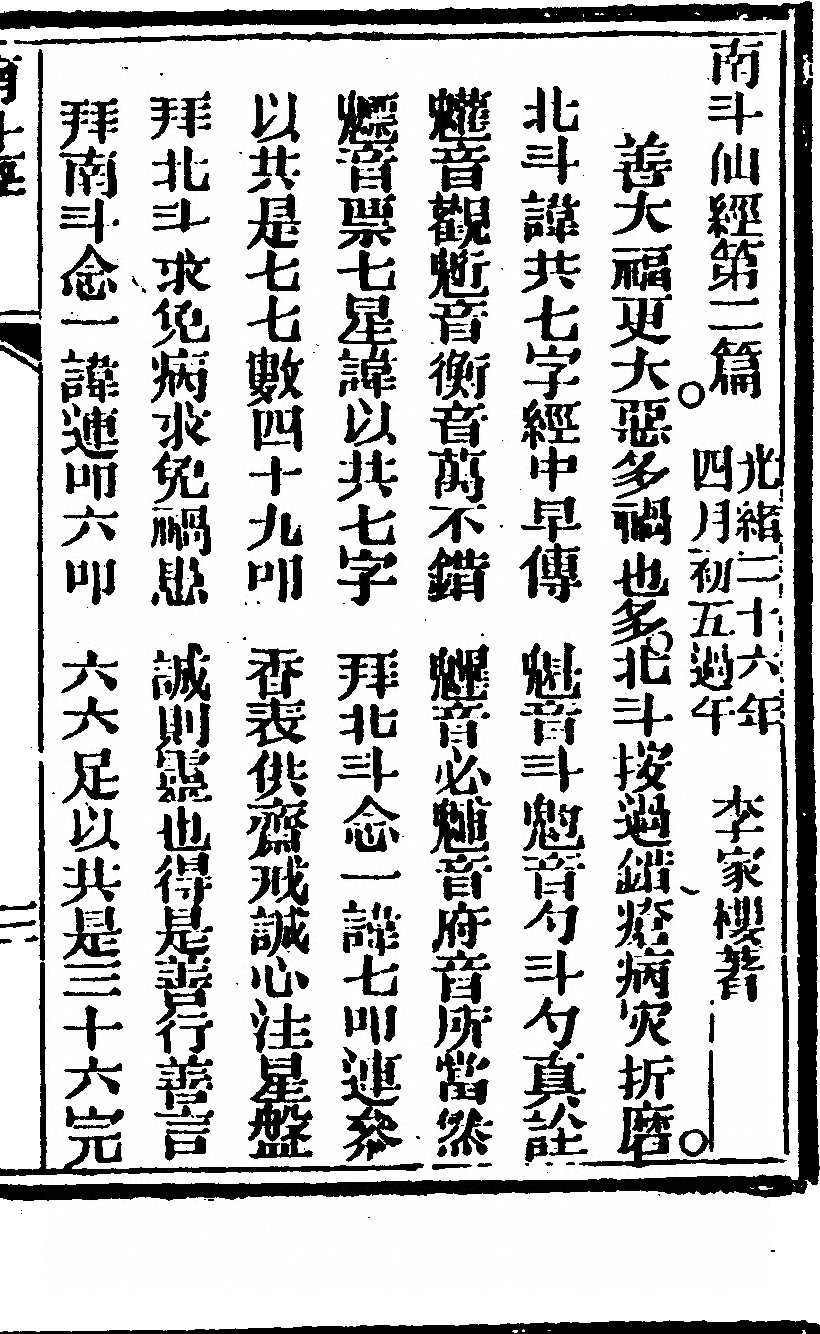 南斗仙經第二篇 光緒二十六年四月初五過午 李家樱著
善大福更大惡多禍也多北斗按過錯 病灾折磨
北斗諱共七字經中早傳 魁音斗魁音勺斗勺真詮
䰟音觀 音衡音萬不錯 魓音必 音府音所當然
魒音票七星諱以共七字 拜北斗念一諱七叩連參
以共是七七數四十九叩 香表供齋戒誠心注星盤
拜北斗求免病求免禍患 誠則靈也得是善行善言
拜南斗念一諱連叩六叩 六六足以共是三十六完
南斗經
二